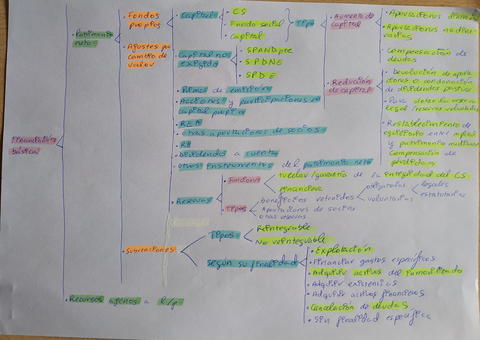 Financiación
básica
· Patrimonio
neto
· Fondos
propios
· Ajustes por
cambio de
valor
· Capital
· CS
· Fondo social
· Capital
Tipo
· Aumento de
capital
· Aportaciones dinerarias
· Aportaciones no dine-
rarias
· Compensación de
deudas
· Reducción
de capital
· Devolución de aporta-
ciones o condonación
de dividendos pasivos
· Para dotar la reserva
legal/reservas voluntarias
· Restablecimiento de
equilibrio entre capital
y patrimonio mediante
compensación de
pérdidas
· Capital no
exigido
· SPDNE
· SPDE
· Prima de emisión
· Acciones y participaciones en
capital propias
· REA
· Otras aportaciones de socios
· RA
· Dividendo a cuenta
· Otros instrumentos del patrimonio neto
· Reservas
· Funciones
· Tutelar/garantía de la integridad del CS
· Financiera
· Tipos
· Beneficios retenidos
obligatorias
voluntarias
legales
estatutarias
· Aportaciones de socios
· Otras reservas
· Subvenciones
Tipos
· Reintegrable
· No reintegrable
Según su finalidad
· Explotación
· Financiar gastos específicos
· Adquirir activos del inmovilizado
· Adquirir existencias
· Adquirir activos financieros
· Cancelación de deudas
· Sin finalidad específica
· Recursos ajenos a l/p